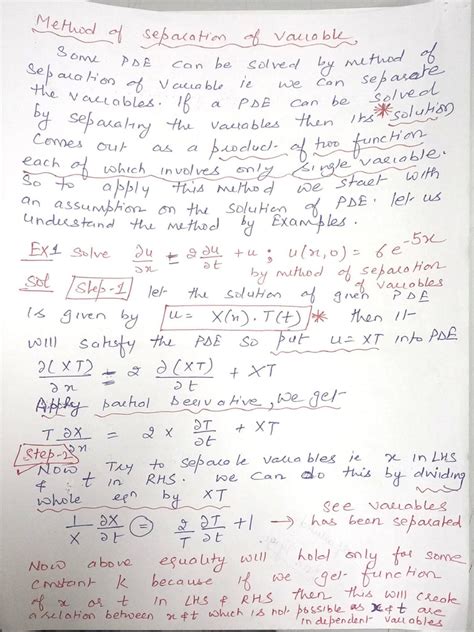 Method of separation of variable
Some PDE can be solved by method of
separation of variable ie we can separate
the variables. If a PDE can be solved
by separating the variables then its * solution
comes out as a product of two function
each of which involves only single variable.
So to apply this method we start with
an assumption on the solution of PDE. let us
understand the method by Examples.
Ex1 Solve ∂u/∂x = 2 ∂u/∂t + u ; u(x,0) = 6e^-5x
by method of separation
of variables
Sol Step-1 let the solution of given PDE
is given by u = X(x) . T(t) * then it
will satisfy the PDE so put u = XT into PDE
∂(XT)/∂x = 2 ∂(XT)/∂t + XT
Apply partial Derivative, we get
T ∂X/∂x = 2 X ∂T/∂t + XT
Step-2
Now Try to separate variables ie x in LHS
& t in RHS. we can do this by dividing
whole eqn by XT
1/X ∂X/∂t = 2/T ∂T/∂t + 1 → see variables
has been separated
Now above equality will hold only for some
constant k because if we get function
of x or t in LHS & RHS then this will create
a relation between x & t which is not possible as x & t are
independent variables